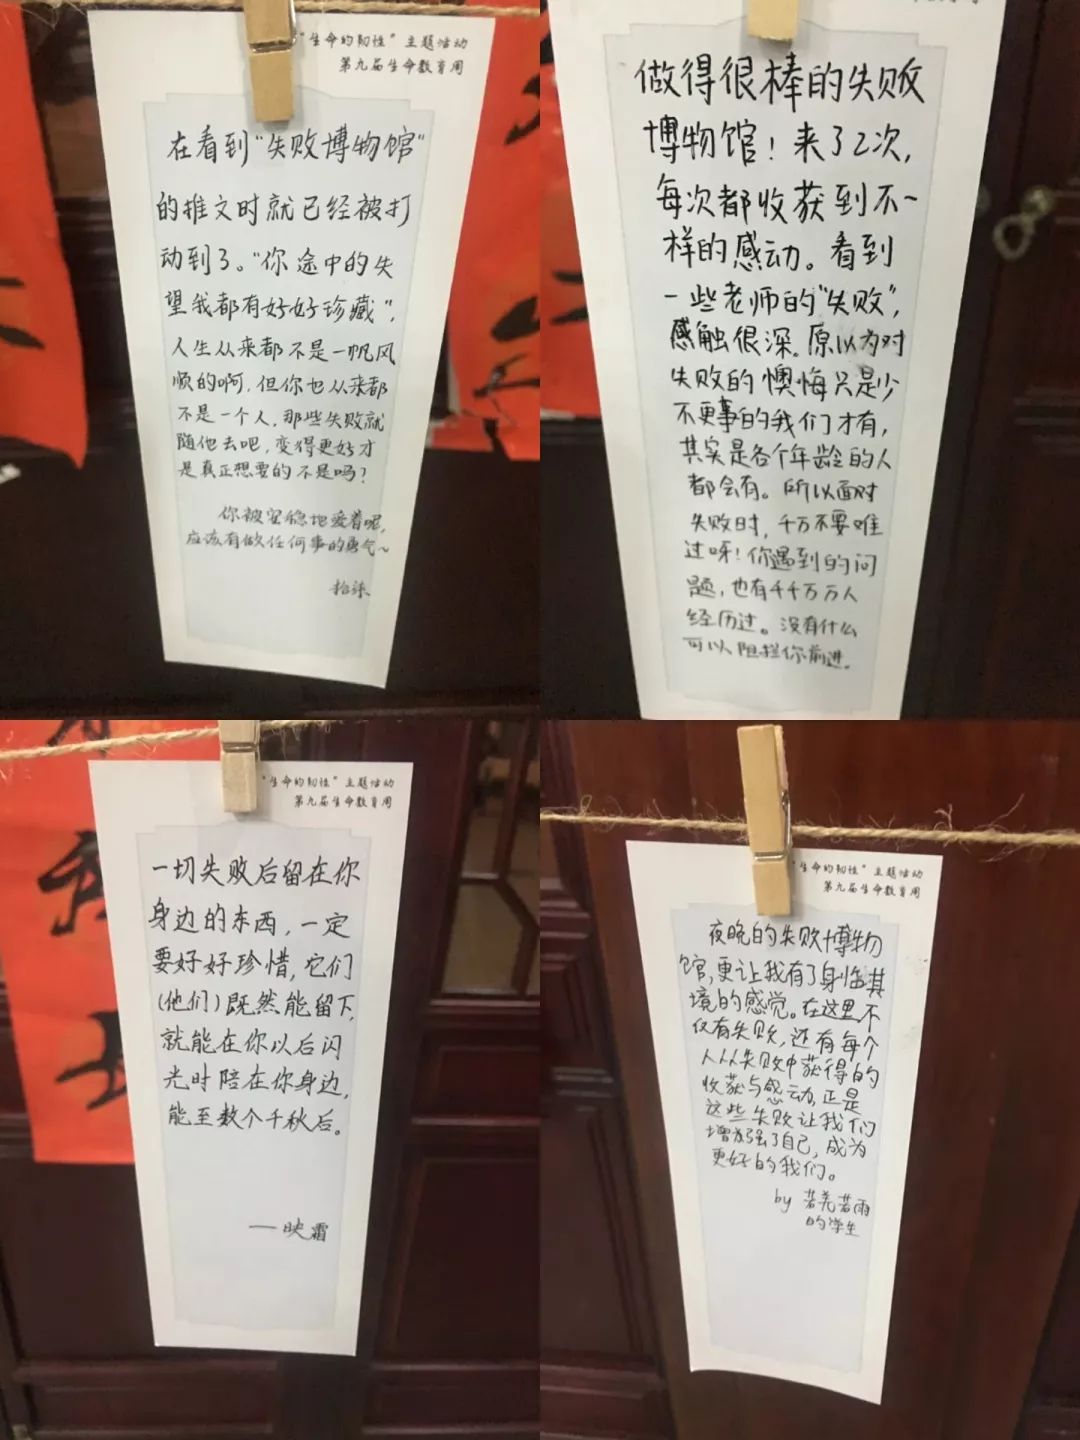 "生命的韧性"主题活动
第九届生命教育周
在看到"失败博物馆"
的推文时就已经被打
动到了。"你途中的失
望我都有好好珍藏",
人生从来都不是一帆风
顺的啊,但你也从来都
不是一个人,那些失败就
随他去吧,变得更好才
是真正想要的不是吗?
你被安稳地爱着呢,
应该有做任何事的勇气~
做得很棒的失败
博物馆!来了2次,
每次都收获到不一
样的感动。看到
一些老师的"失败",
感触很深。原以为对
失败的懊悔只是少
不更事的我们才有,
其实是各个年龄的人
都会有。所以面对
失败时,千万不要难
过呀!你遇到的问
题,也有千千万万人
经历过。没有什么
可以阻拦你前进。
"生命的韧性"主题活动
第九届生命教育周
一切失败后留在你
身边的东西,一定
要好好珍惜,它们
(他们)既然能留下,
就能在你以后闪
光时陪在你身边,
能至数个千秋后。
——映霜
"生命的韧性"主题活动
第九届生命教育周
夜晚的失败博物
馆,更让我有了身临其
境的感觉。在这里不
仅有失败,还有每个
人从失败中获得的
收获与感动,正是
这些失败让我们
增强了自己,成为
更好的我们。
by 若羌若雨
的学生